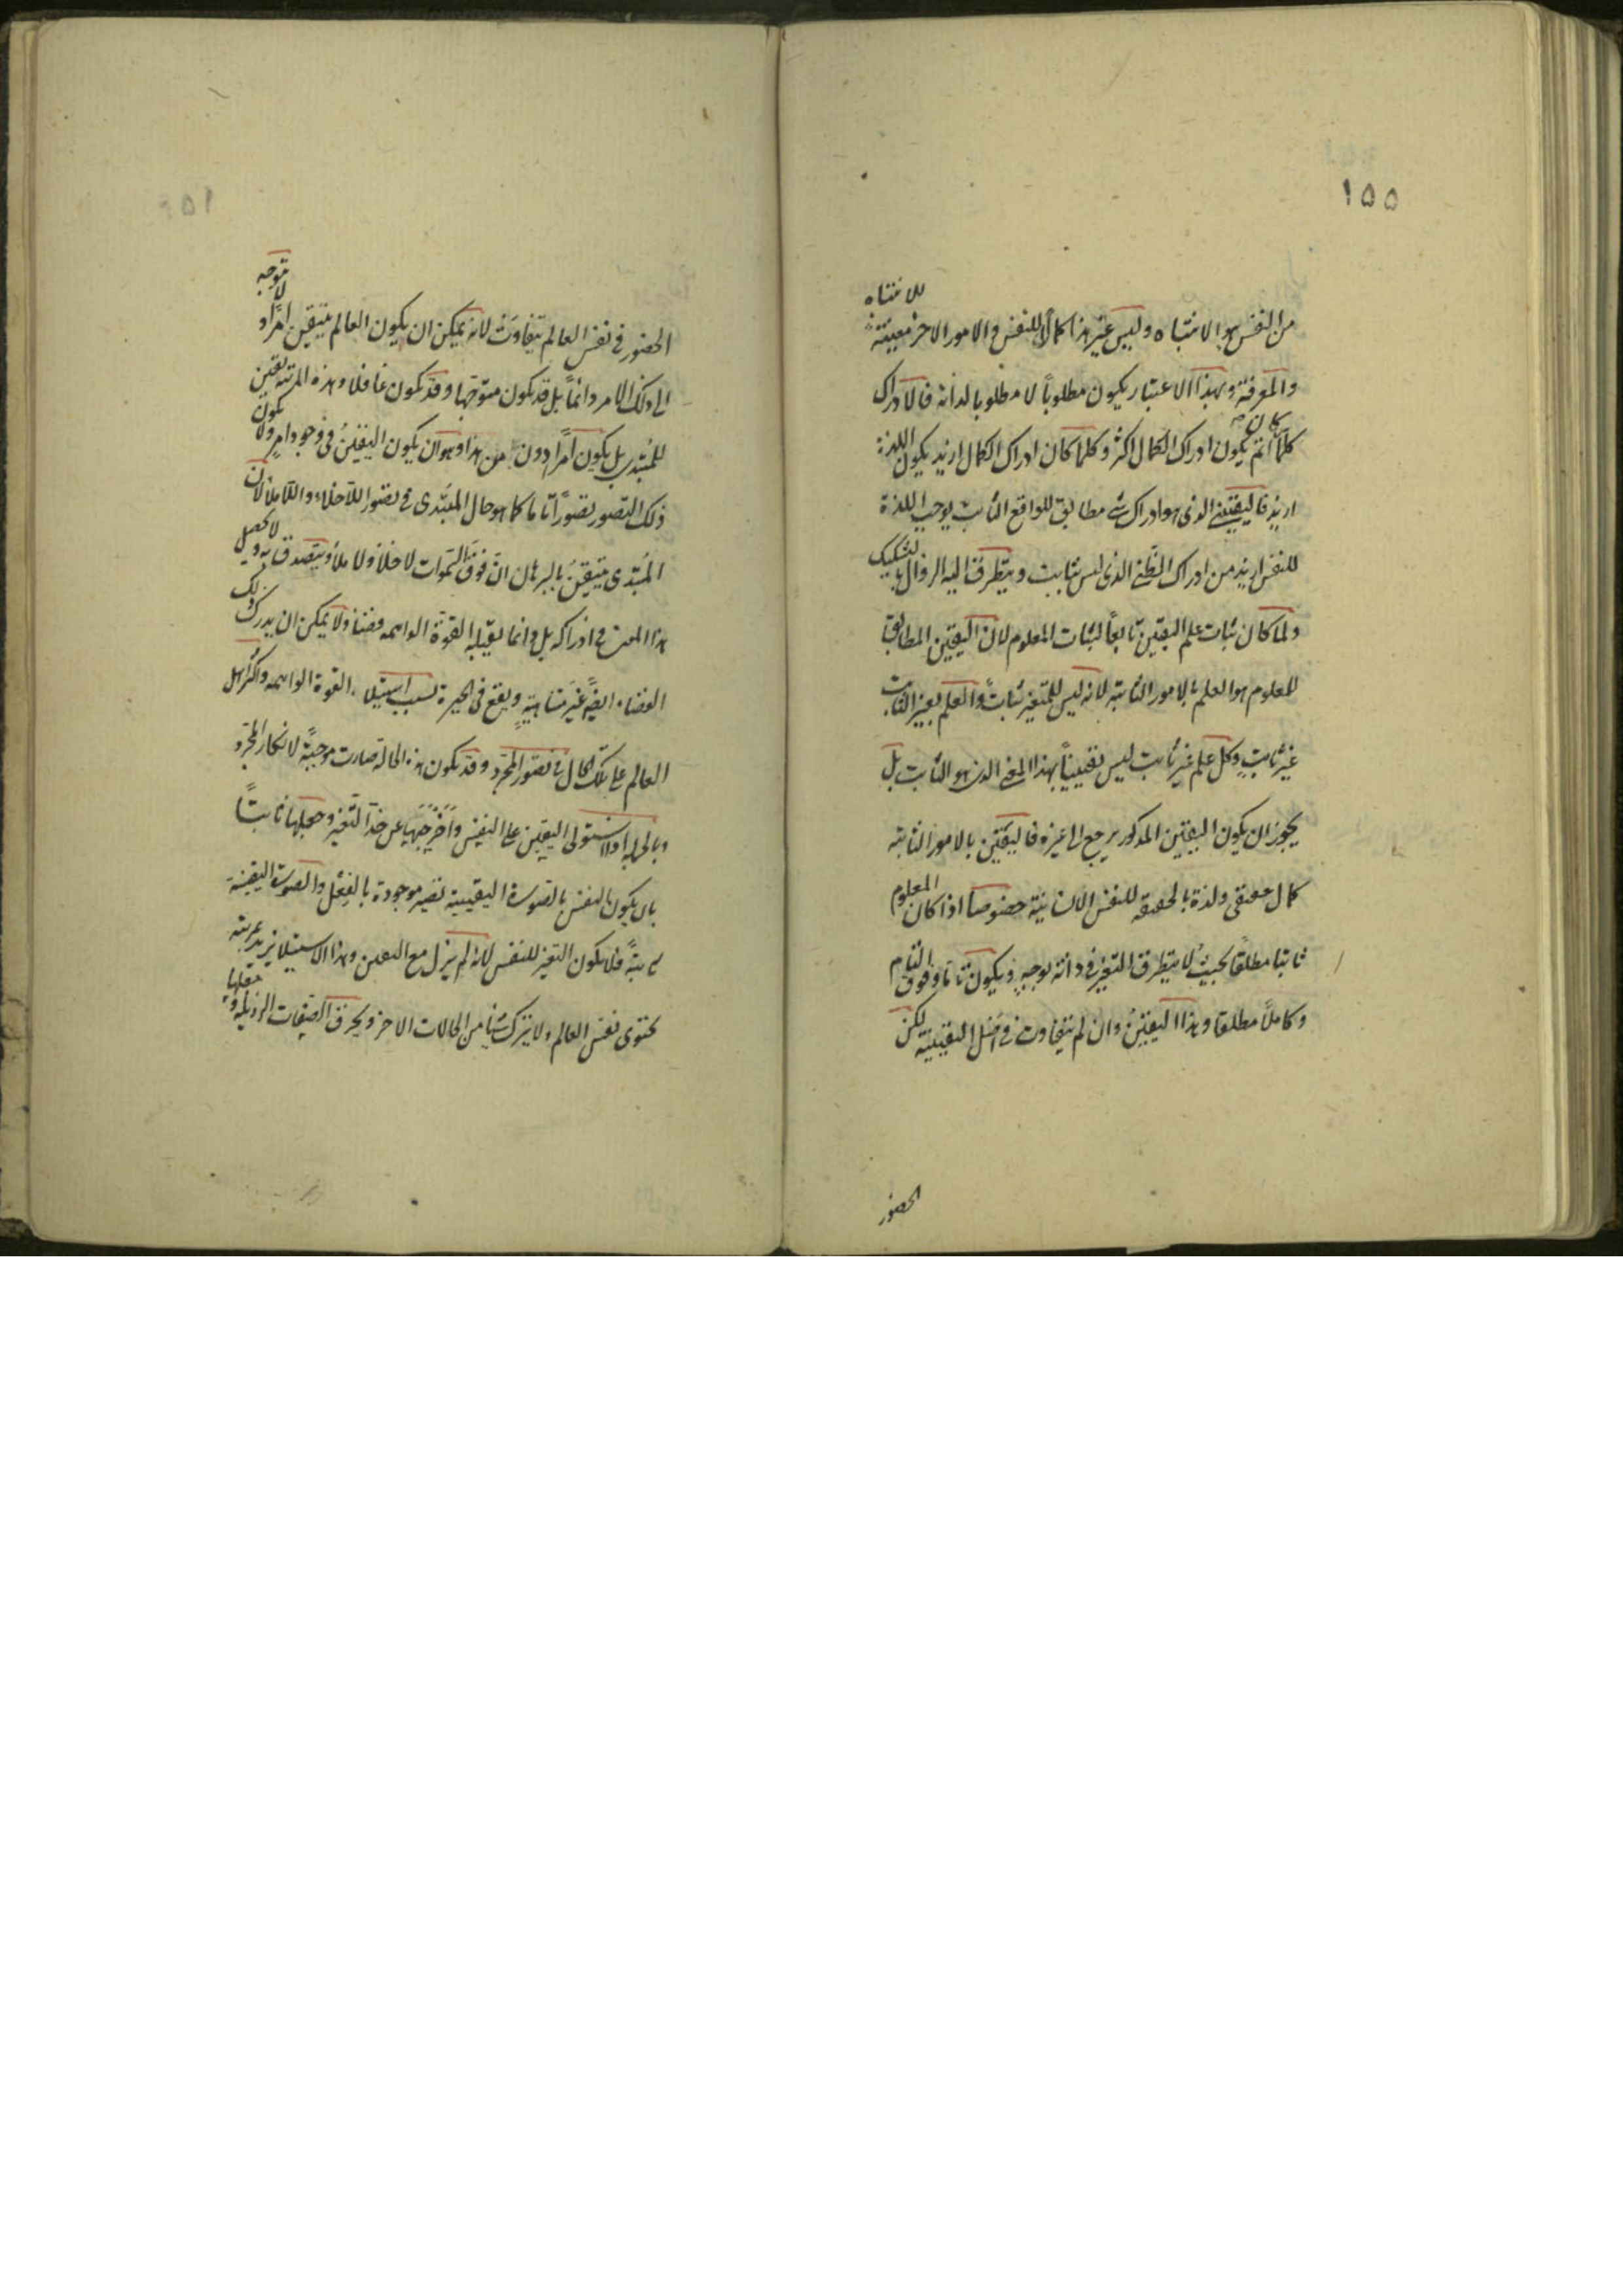 ١٥٥
من النفس هو الانتباه وليس غير هذا كمالاً للنفس والامور الاخر معينة للانتباه
والمعرفة وبهذا الاعتبار يكون مطلوباً لا مطلوبا لذاته فالادراك
كلما كان اتم يكون ادراك الكمال اكثر وكلما كان ادراك الكمال ازيد يكون اللذة
ازيد فاليقيني الذى هو ادراك شى مطابق للواقع الثابت يوجب اللذة
للنفس ازيد من ادراك الظنى الذى ليس بثابت ويتطرق اليه الزوال بالتشكيك
ولما كان ثبات علم اليقين تابعاً لثبات المعلوم لان اليقين المطابق
للمعلوم هو العلم بالامور الثابتة لانه ليس للمتغير ثبات والعلم بغير الثابت
غير ثابتٍ وكل علم غير ثابت ليس يقينياً بهذا المعنى الذى هو الثابت بل
يجوز ان يكون اليقين المذكور يرجع الى غيره فاليقين بالامور الثابتة
كمال حقيقى ولذة بالحقيقة للنفس الانسانية خصوصاً اذا كان المعلوم
ثابتا مطلقاً بحيث لا يتطرق التغير فى ذاته بوجهٍ ويكون تاما وفوق التام
وكاملاً مطلقا وهذا اليقين وان لم يتفاوت فى اصل اليقينية لكن
الحضور
١٥٦
الحضور فى نفس العالم يتفاوت لانه يمكن ان يكون العالم يتيقن امراً ولا يتوجه
الى ذلك الامر دائماً بل قد يكون متوجها وقد يكون غافلا وهذه المرتبة يقين
للمبتدى بل يكون امراً دون من هذا وهو ان يكون اليقين فى وجود امرٍ ولا يكون
ذلك التصور تصوراً تاما كما هو حال المبتدى فى تصور اللاخلاء واللاملاء لان
المبتدى يتيقن بالبرهان ان فوق السموات لا خلأ ولا ملأ ويتصدق به ولا يحصل
هذا المعنى فى ادراكه بل دائما يقيله القوة الواهمه فضاء ولا يمكن ان يدرك ذلك
الفضاء ايضاً غير متناهيةٍ ويقع فى الحيرة بسبب استيلاء القوة الواهمه واكثر اهل
العالم على تلك الحال فى تصور المجرد وقد يكون هذه الحالة صارت موجبةً لانكار المجرد
وبالجملة اذا استولى اليقين على النفس واخرجها عن حد التغير وجعلها ثابتاً
بان يكون النفس بالصورة اليقينية تصير موجودة بالفعل والصورة اليقينية
ثابتةً فلا يكون التغير للنفس لانه لم يزل مع اليقين وهذا الاستيلا يزيد مرتبة
يحتوى نفس العالم ولا يترك شيئا من الحالات الاخر ويحرق الصفات الرذيلة